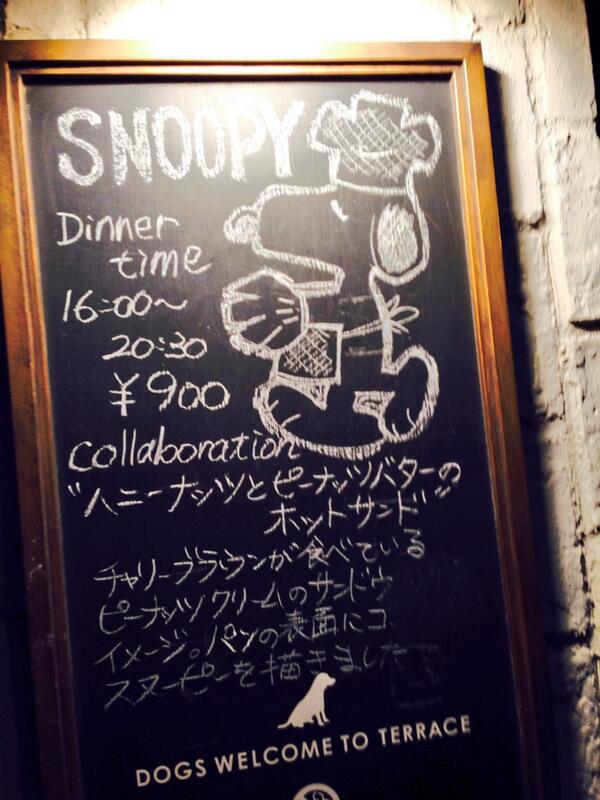 SNOOPY
Dinner
time
16:00~
20:30
¥900
collaboration
"ハニーナッツとピーナッツバターの
ホットサンド"
チャリーブラウンが食べている
ピーナッツクリームのサンドウ
イメージ。パンの表面にコ
スヌーピーを描きました
DOGS WELCOME TO TERRACE